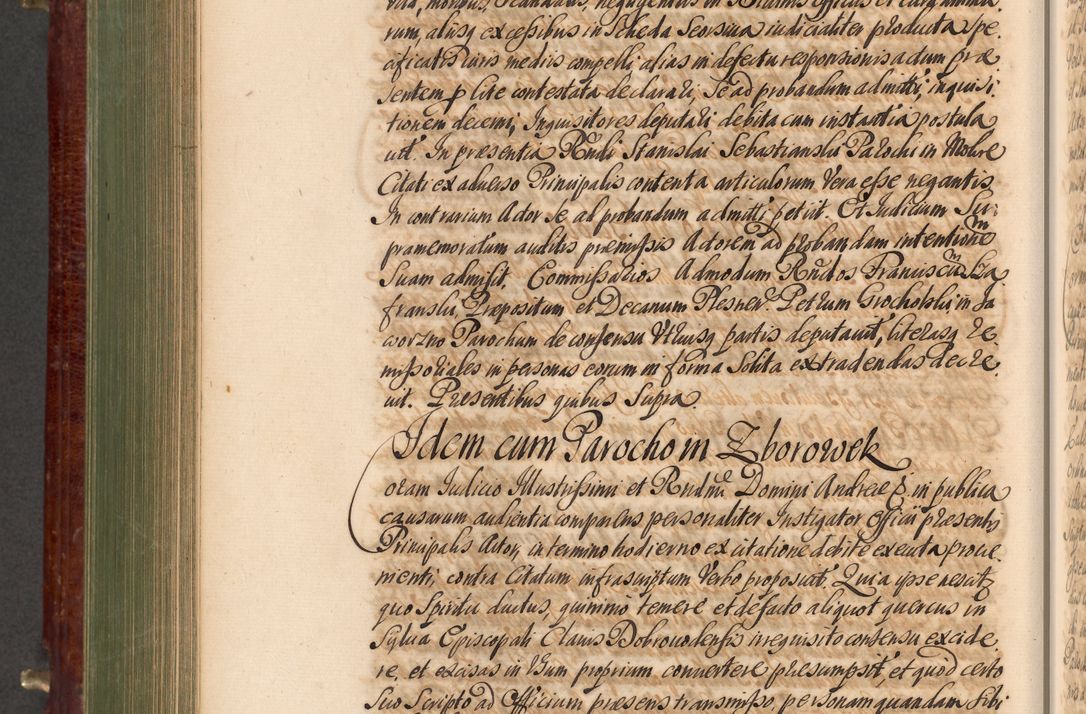 vita, moribus, scandalis, negligentiis in Divinis officiis et cura anima
rum, aliisq excessibus in Scheda Seorsiva iudicialiter producta spe
cificatis Iuris mediis compelli alias in defectu responsionis actum præ
sentem p lite contestata declarari, Se ad probandum admitti, inquisi
tionem decerni, Inquisitores deputari debita cum instantia postula
uit. In præsentia Rndi Stanislai Sebastianski Parochi in Mokre
Citati ex aduerso Principalis contenta articulorum Vera esse negantis.
In contrarium Actor Se ad probandum admitti petiit. Et Iudicium Su
pramemoratum auditis præmissis Actorem ad probandam intentionem
Suam admisit, Commissarios Admodum Rndos Franciscum Sza
franski, Præpositum et Decanum Plesnen. Petrum Grocholski, in Ja
worzno Parochum de consensu Vtriusq partis deputauit, literasq re
missoriales in personas eorum in forma Solita extradendas decre
uit. Præsentibus quibus Supra
Idem cum Parocho in Zborowek
oram Iudicio Illustrissimi et Rndmi Domini Andreæ Z. in publica
causarum audientia comparens personaliter Instigator Officii præsentis
Principalis Actor, in termino hodierno ex citatione debite executa proue
nienti, contra Citatum infrascriptum Verbo proposuit, Quia ipse nescit
quo Spiritu ductus, quinimo temere et defacto aliquot quercus in
Sylua Episcopali Clauis Dobrowodensis irrequisito consensu excide
re, et excisas in Vsum proprium conuertere præsumpsit, et quod certo
Suo Scripto ad Officium præsens transmisso, personam quandam Sibi